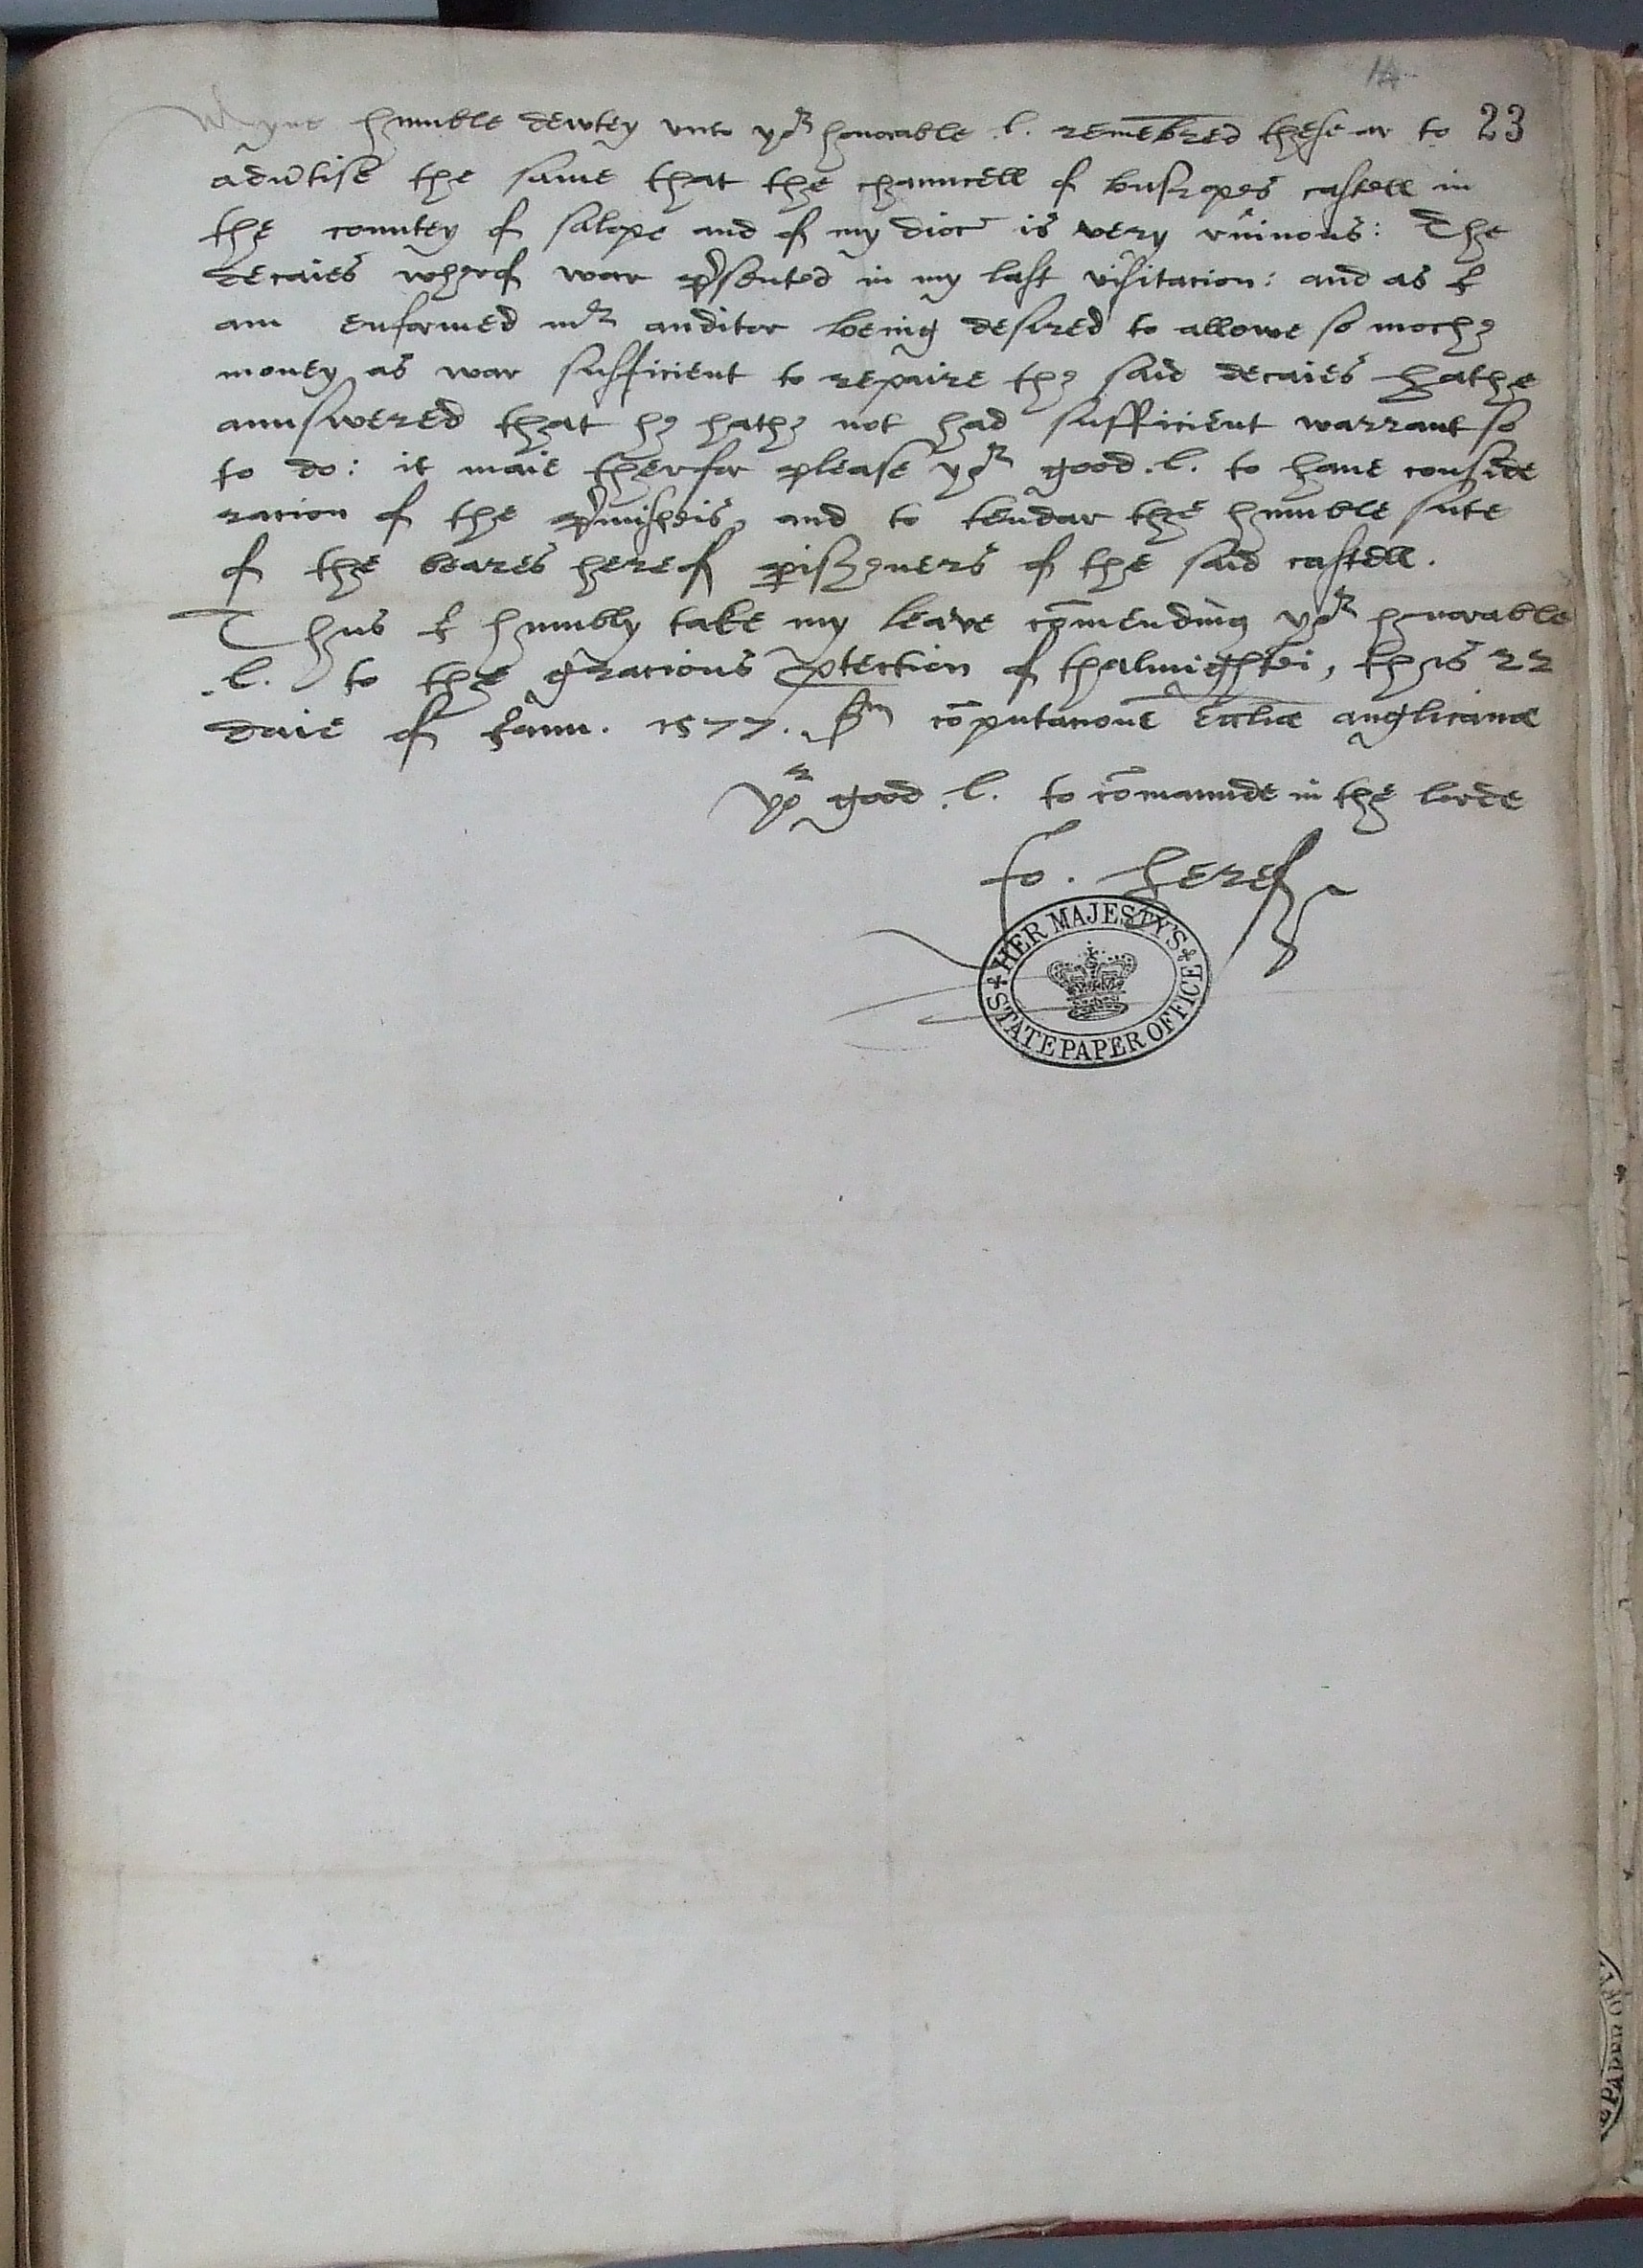 14
23
Myne humble dewtey vnto yor honorable .l. remēbred these ar to
adu̓tise the same that the chauncell of bushopes castell in
the countey of salope and of my dioc̄ is very ruinous: The
decaies wherof war p̓sented in my last visitacion: and as I
am enformed mr auditor being desired to allowe so moche
money as war sufficient to repaire the said decaies hathe
aunswered that he hathe not had sufficient warrant so
to do: it maie therfor please yor good .l. to haue conside
racion of the p̓misseis, and to tendar the humble sute
of the beares herof pishēners of the said castell.
Thus I humbly take my leave cōmending yor honorable
.l. to the gracious ptection of thalmightei, this 22
daie of Ianu. 1577. scdm cōputacionē eccliæ anglicanæ
yor good .l. to cōmaunde in the lorde
Io. heref
HER MAJESTY'S
STATE PAPER OFFICE